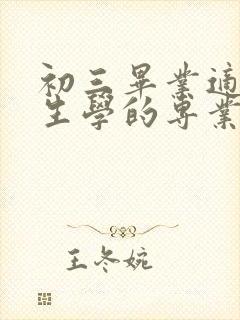 初三畢業適
生學的專業
王冬婉